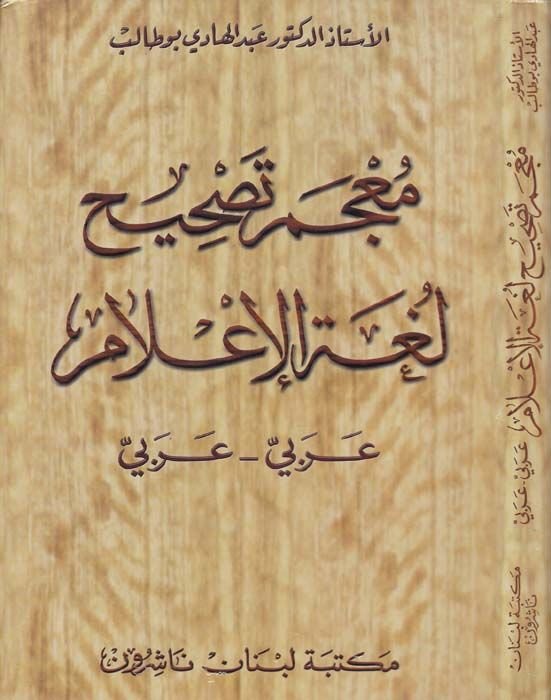 الأستاذ الدكتور عبد الهادي بوطالب
مُعْجَم تَصْحِيح
لُغَة الإِعْلَام
عَرَبيّ - عَرَبيّ
مكتبة لبنان ناشرون
الأستاذ الدكتور
عبد الهادي بوطالب
مُعْجَم تَصْحِيح لُغَة الإِعْلَام
عَرَبيّ - عَرَبيّ
مكتبة لبنان
ناشرون